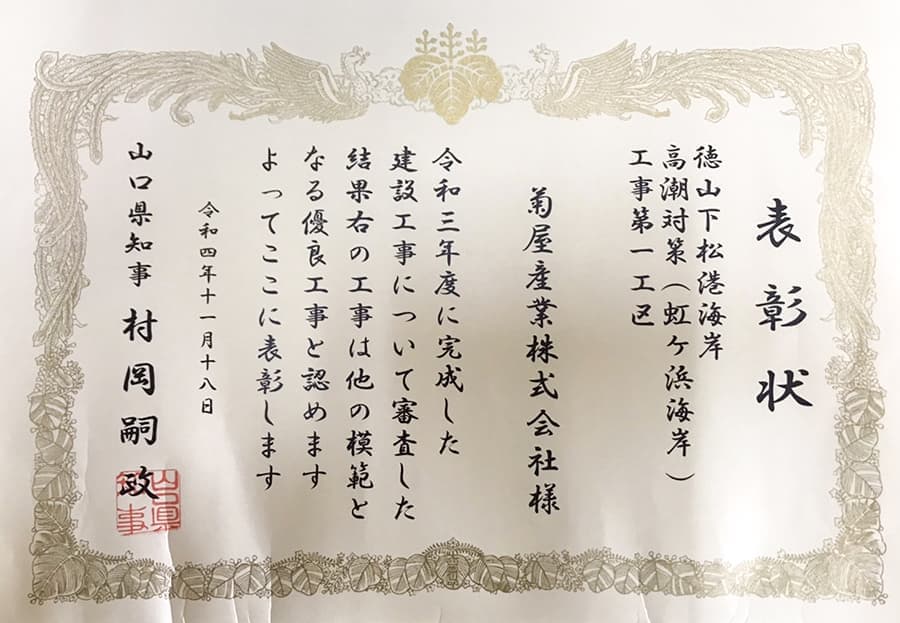 表彰状
徳山下松港海岸
高潮対策(虹ケ浜海岸)
工事第一工区
菊屋産業株式会社様
令和三年度に完成した
建設工事について審査した
結果右の工事は他の模範と
なる優良工事と認めます
よってここに表彰します
令和四年十一月十八日
山口県知事 村岡嗣政
山口縣
知事